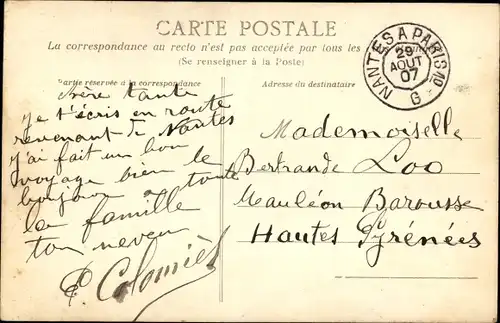 CARTE POSTALE
La correspondance au recto n'est pas acceptée par tous les
(Se renseigner à la Poste)
NANTES A PARIS 1O
29
AOUT
07
G
Partie réservée à la correspondance
Adresse du destinataire
chère tante
Je t'écris en route
revenant de Nantes
J'ai fait un bon
voyage bien le
bonjour à toute
la famille
ton neveu
P. Colomiès
Mademoiselle
Bertrande Loo
Mauléon Barousse
Hautes Pyrénées